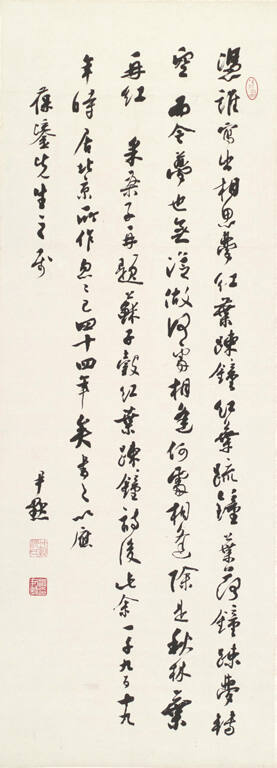 憑誰寫出相思夢紅葉疎鐘紅葉疏鐘葉落鐘疎夢轉
空 而今夢也無從做何處相逢何處相逢除是秋林葉
再紅 采桑子再題蘇子穀紅葉疎鐘詩後此余一千九百十九
年時居北京所作忽忽已四十四年矣書之以應
葆 先生之屬
尹默